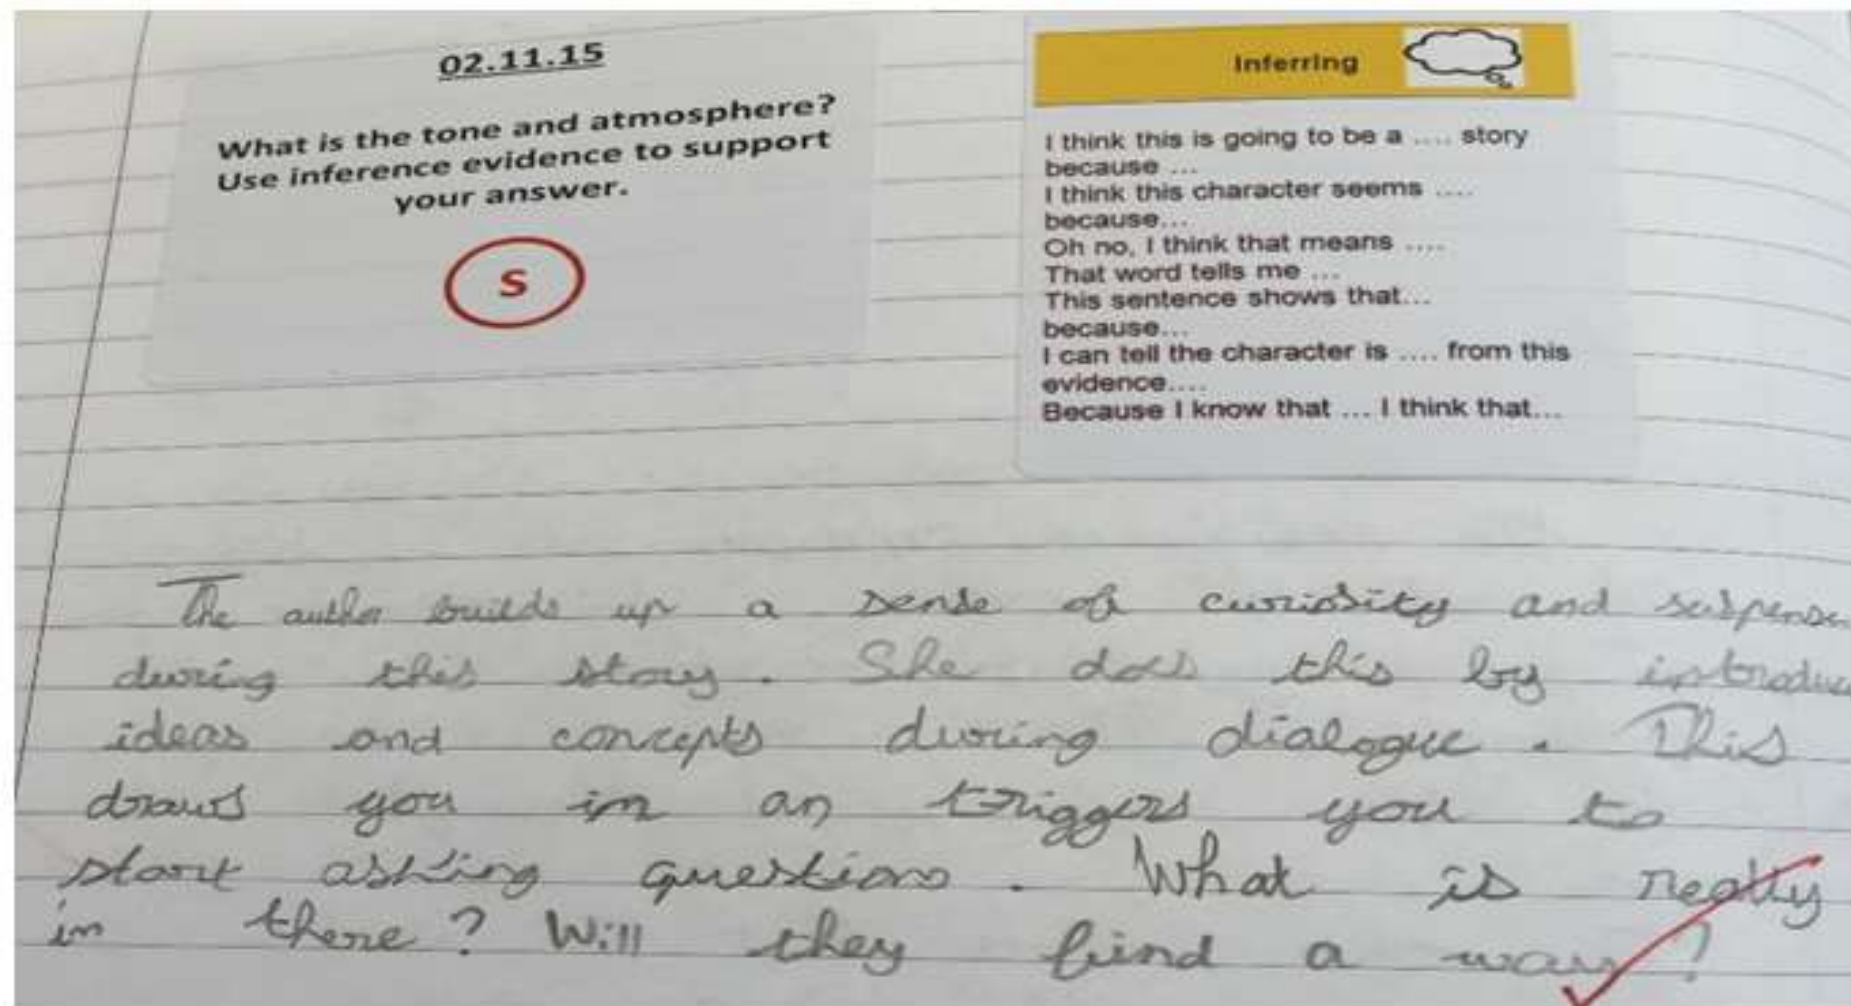 02.11.15
What is the tone and atmosphere?
Use inference evidence to support
your answer.
S
Inferring
I think this is going to be a .... story
because ...
I think this character seems ....
because...
Oh no, I think that means ....
That word tells me ...
This sentence shows that...
because...
I can tell the character is .... from this
evidence....
Because I know that ... I think that...
The author builds up a sense of curiosity and suspense
during this story. She does this by introduc
ideas and concepts during dialogue. This
draws you in an triggers you to
start asking questions. What is really
in there? Will they find a way?